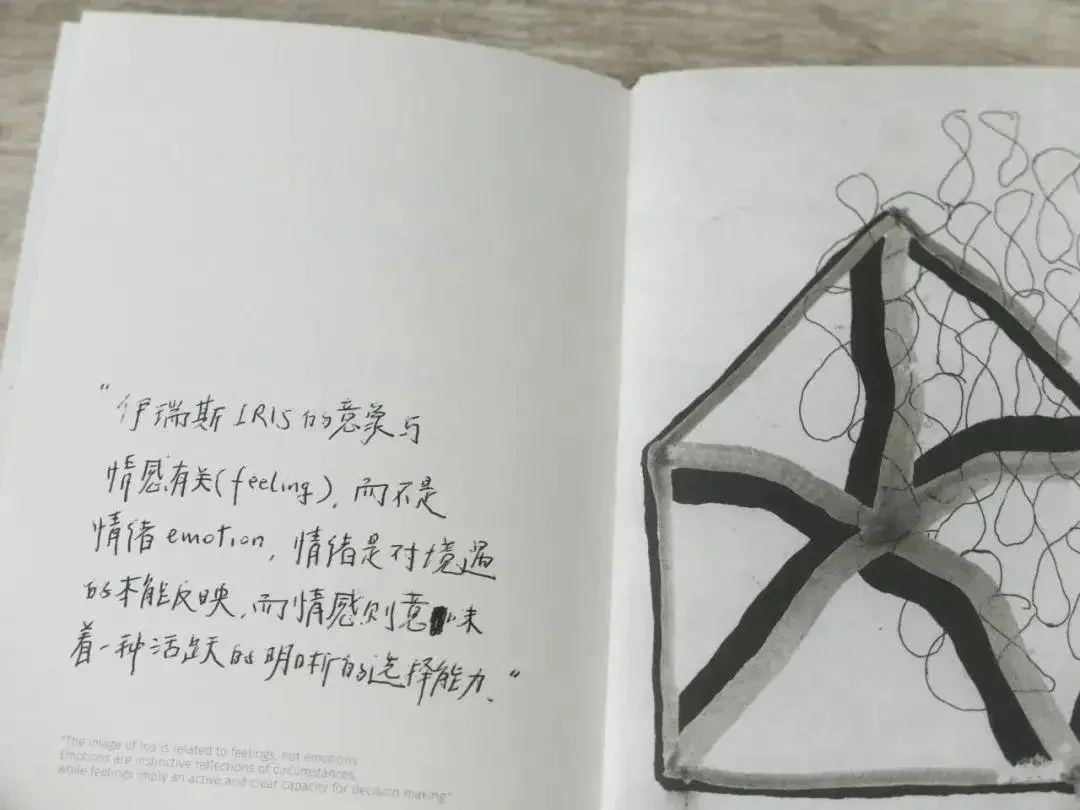 “伊瑞斯 IRIS 的意象与
情感有关(feeling), 而不是
情绪 emotion, 情绪是对境遇
的本能反映, 而情感则意味
着一种活跃的明晰的选择能力.”
"The image of Iris is related to feelings, not emotions
Emotions are instinctive reflections of circumstances,
while feelings imply an active and clear capacity for decision making"